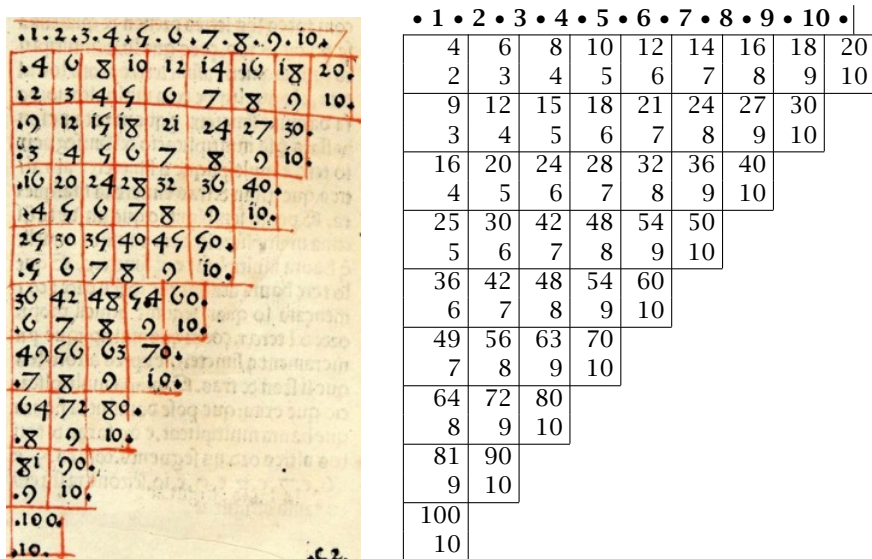 .1.2.3.4.5.6.7.8.9.10.
.4 6 8 10 12 14 16 18 20.
.2 3 4 5 6 7 8 9 10.
.9 12 15 18 21 24 27 30.
.3 4 5 6 7 8 9 10.
.16 20 24 28 32 36 40.
.4 5 6 7 8 9 10.
25 30 35 40 45 50.
.5 6 7 8 9 10.
36 42 48 54 60.
.6 7 8 9 10.
49 56 63 70.
.7 8 9 10.
64 72 80.
.8 9 10.
81 90.
.9 10.
.100.
.10.
• 1 • 2 • 3 • 4 • 5 • 6 • 7 • 8 • 9 • 10 •
4 6 8 10 12 14 16 18 20
2 3 4 5 6 7 8 9 10
9 12 15 18 21 24 27 30
3 4 5 6 7 8 9 10
16 20 24 28 32 36 40
4 5 6 7 8 9 10
25 30 42 48 54 50
5 6 7 8 9 10
36 42 48 54 60
6 7 8 9 10
49 56 63 70
7 8 9 10
64 72 80
8 9 10
81 90
9 10
100
10